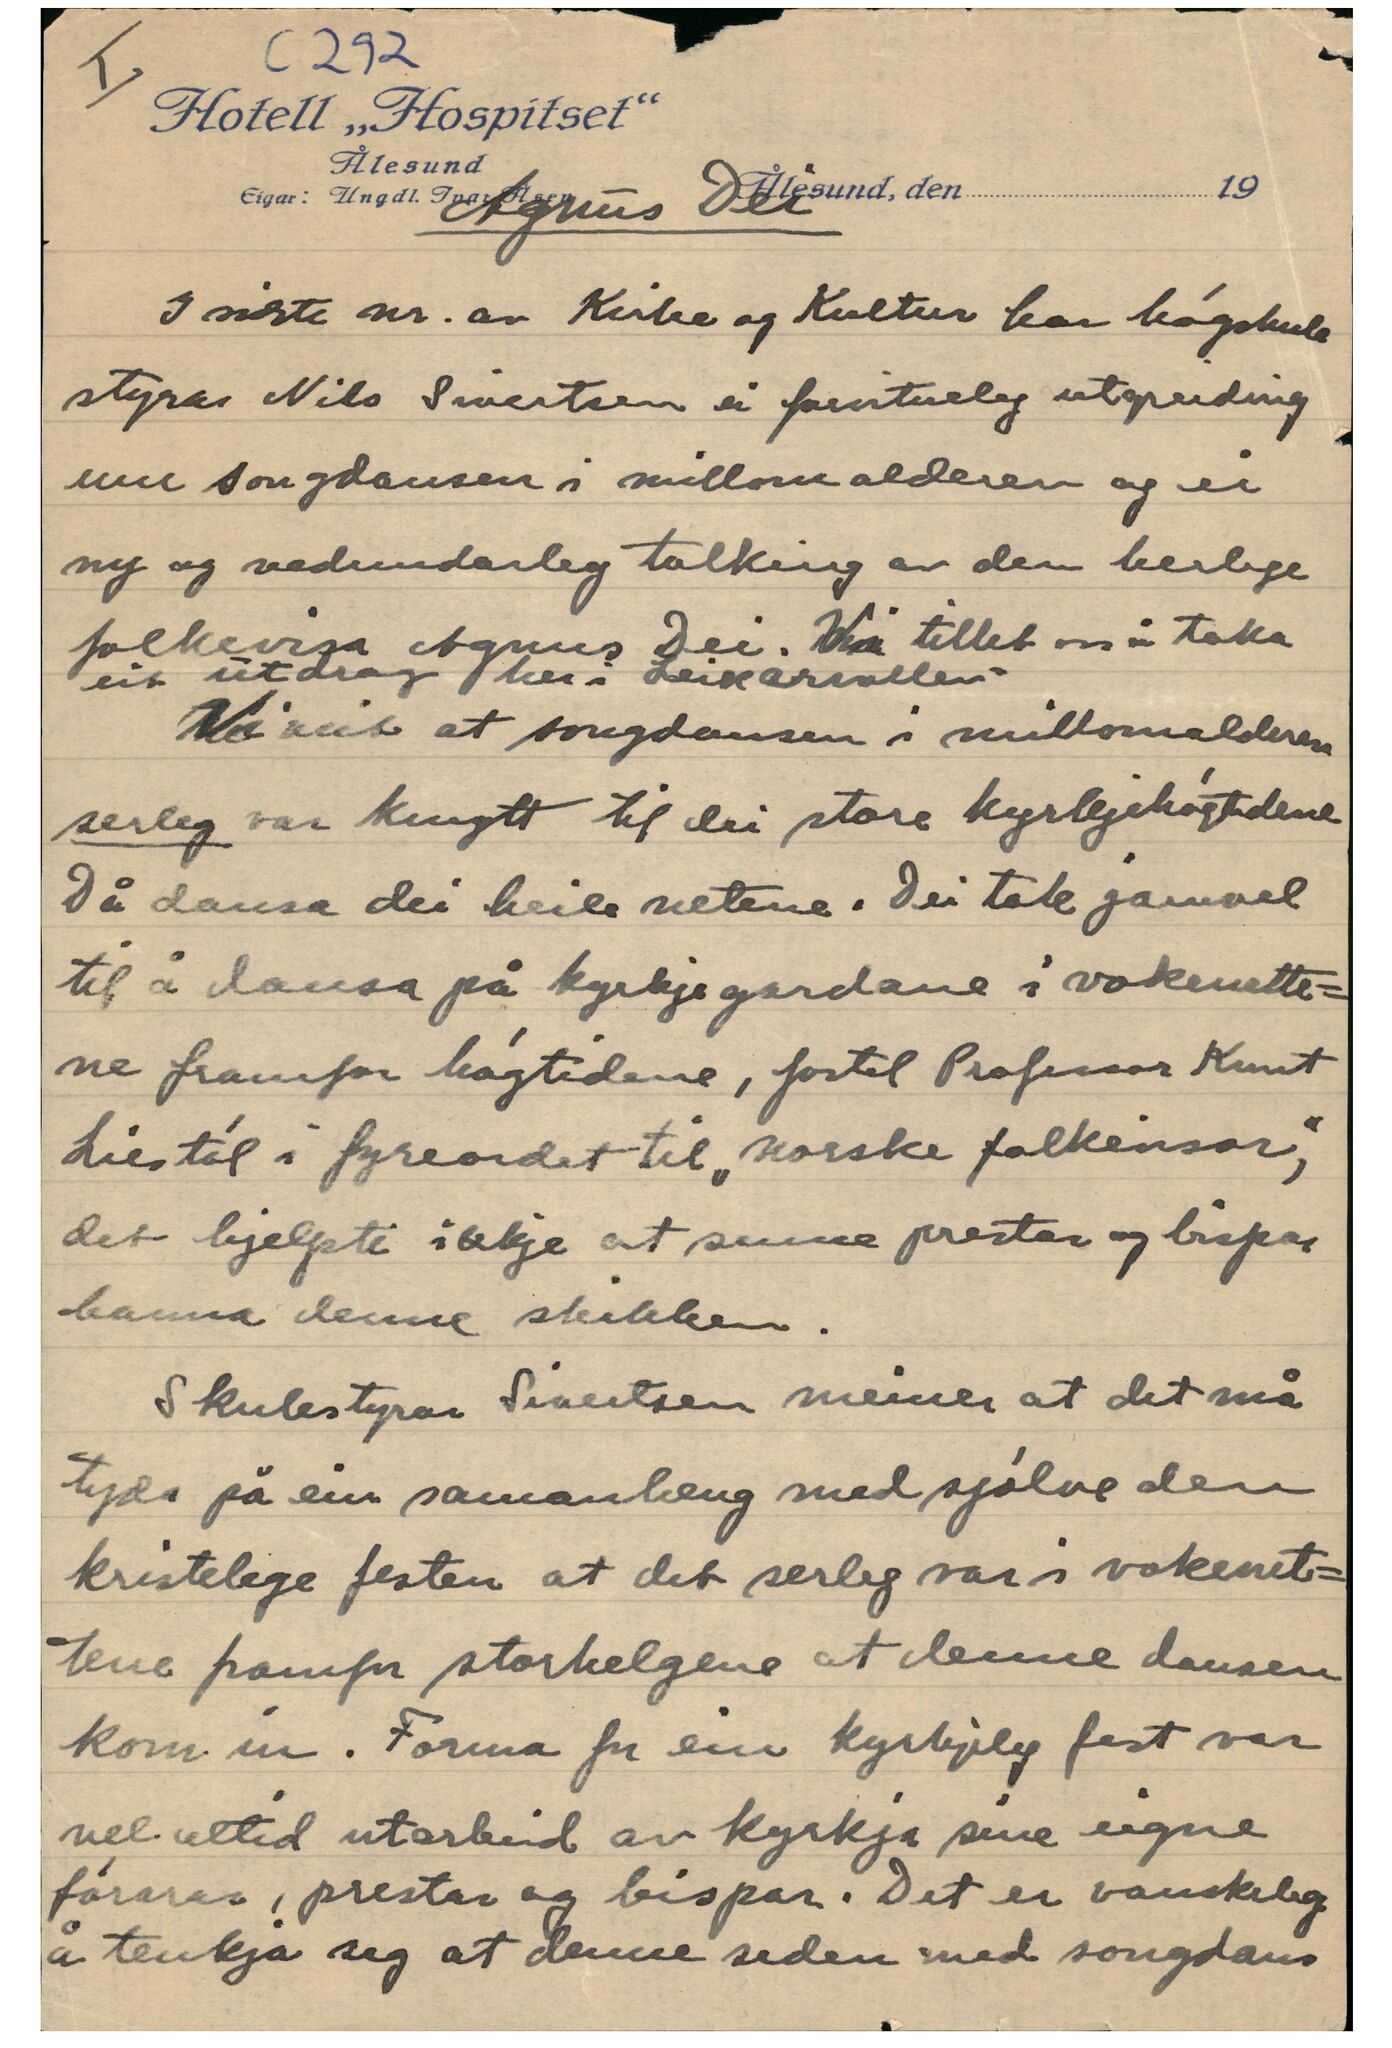 I
C 292
Hotell „Hospitset“
Ålesund
Eigar: Ungdl. Ivar Åsen
Ålesund, den 19
Agnus Dei
I siste nr. av Kirke og Kultur har høgskule
styrar Nils Sivertsen ei forvitneleg utgreiding
um songdansen i millomalderen og ei
ny og vedunderleg tolking av den herlege
folkevisa Agnus Dei. Vi tillet oss å taka
eit utdrag her i Leikarvollen.
Vi veit at songdansen i millomalderen
serleg var knytt til dei store kyrkjehøgtidene
Då dansa dei heile netene. Dei tok jamvel
til å dansa på kyrkjegardane i vokenette=
ne framfor høgtidene, fortel Professor Knut
Liestøl i fyreordet til „norske folkevisor“,
det hjelpte ikkje at sume prestar og bispar
banna denne skikken.
Skulestyrar Sivertsen meiner at det må
tyda på ein samanheng med sjølve den
kristelege festen at det serleg var i vokenet=
tene framfor storhelgene at denne dansen
kom in. Forma for ein kyrkjeleg fest var
vel alltid utarbeid av kyrkja sine eigne
førarar, prestar og bispar. Det er vanskeleg
å tenkja seg at denne seden med songdans